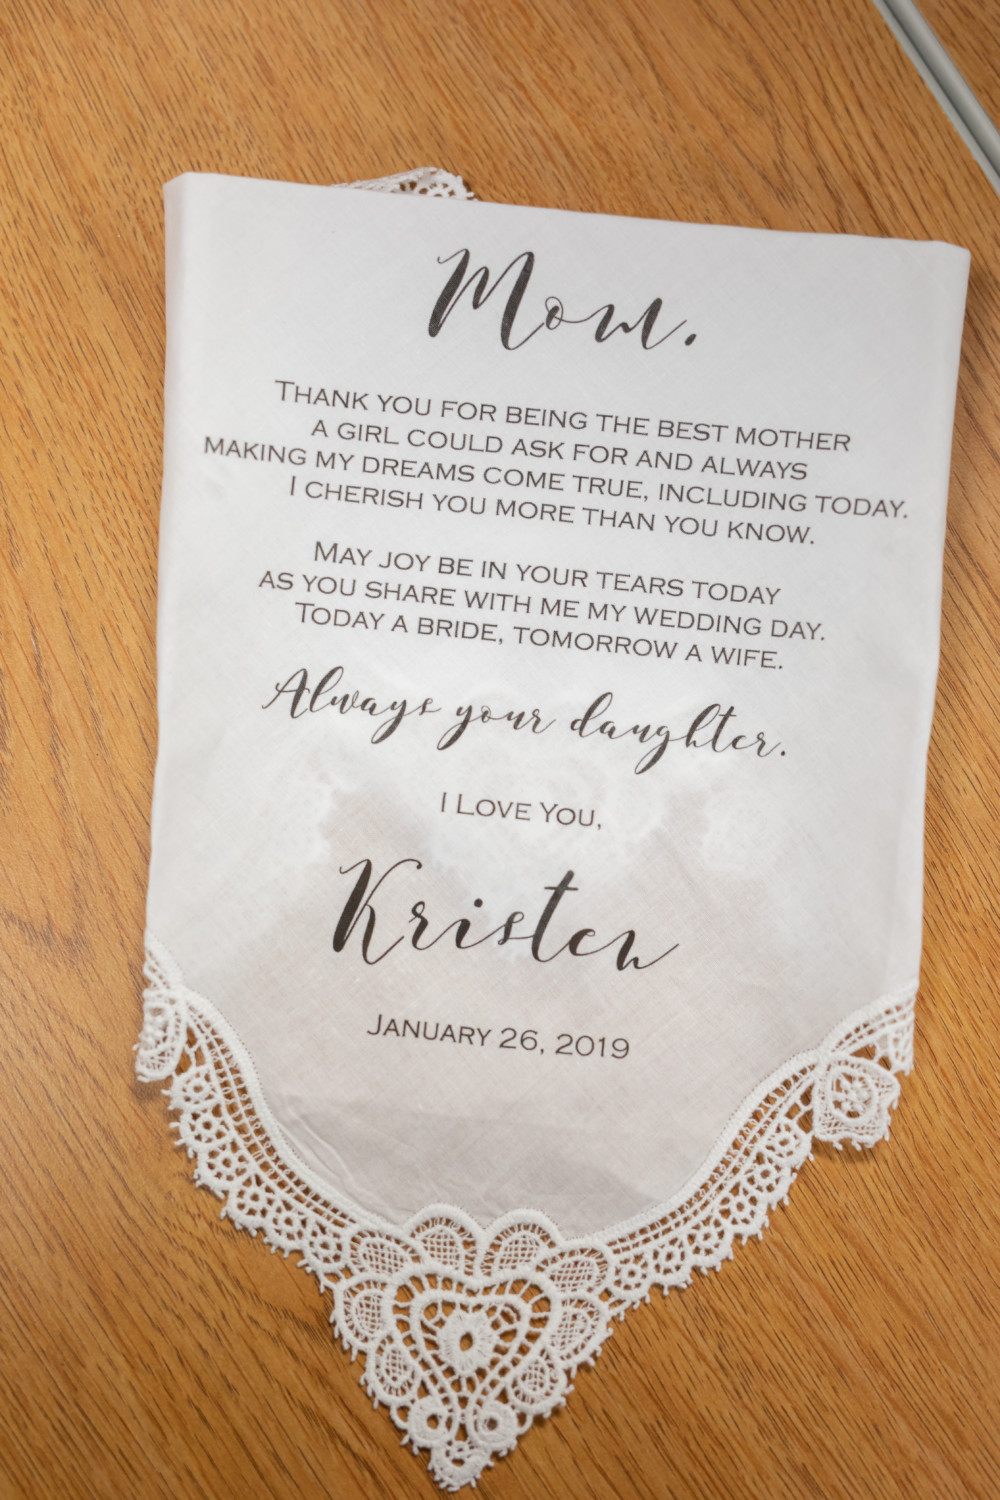 Mom.
Thank you for being the best mother
a girl could ask for and always
making my dreams come true, including today.
I cherish you more than you know.
May joy be in your tears today
as you share with me my wedding day.
Today a bride, tomorrow a wife.
Always your daughter.
I Love You,
Kristen
January 26, 2019